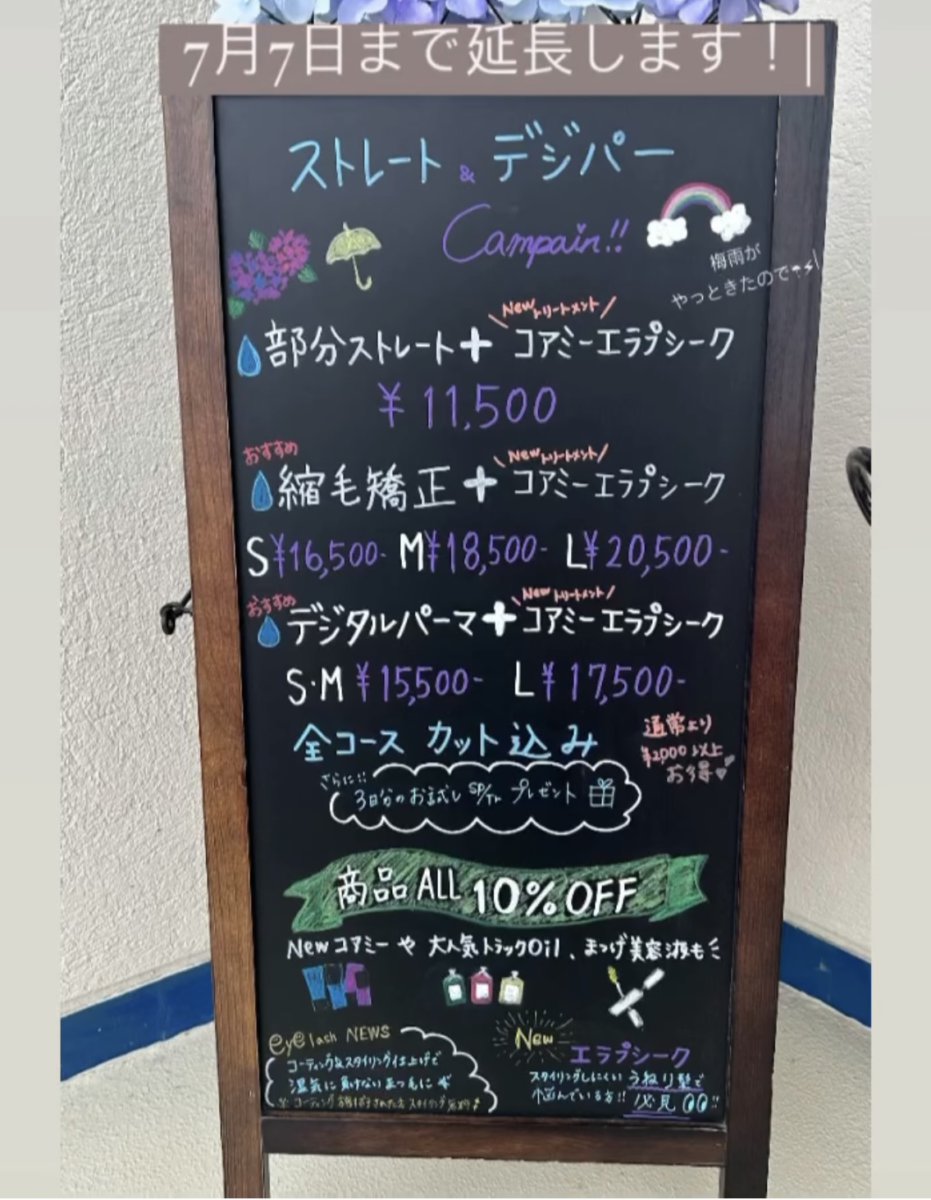 7月7日まで延長します！
ストレート & デジパー
Campain!!
梅雨が
やっときたので
Newトリートメント
部分ストレート+コアミーエラプシーク
¥11,500
おすすめ
Newトリートメント
縮毛矯正+コアミーエラプシーク
S¥16,500- M¥18,500- L¥20,500-
おすすめ
Newトリートメント
デジタルパーマ+コアミーエラプシーク
S·M ¥15,500- L¥17,500-
全コース カット込み
通常より
¥2,000以上
お得
さらに!!
3日分のお試しSP/Tr プレゼント
商品ALL 10%OFF
Newコアミーや 大人気トラックOil、まつげ美容液も
eyelash NEWS
コーティング&スタイリング仕上げで
湿気に負けないまつ毛に
New
エラプシーク
スタイリングしにくい うねり髪で
悩んでいる方!! 必見!!